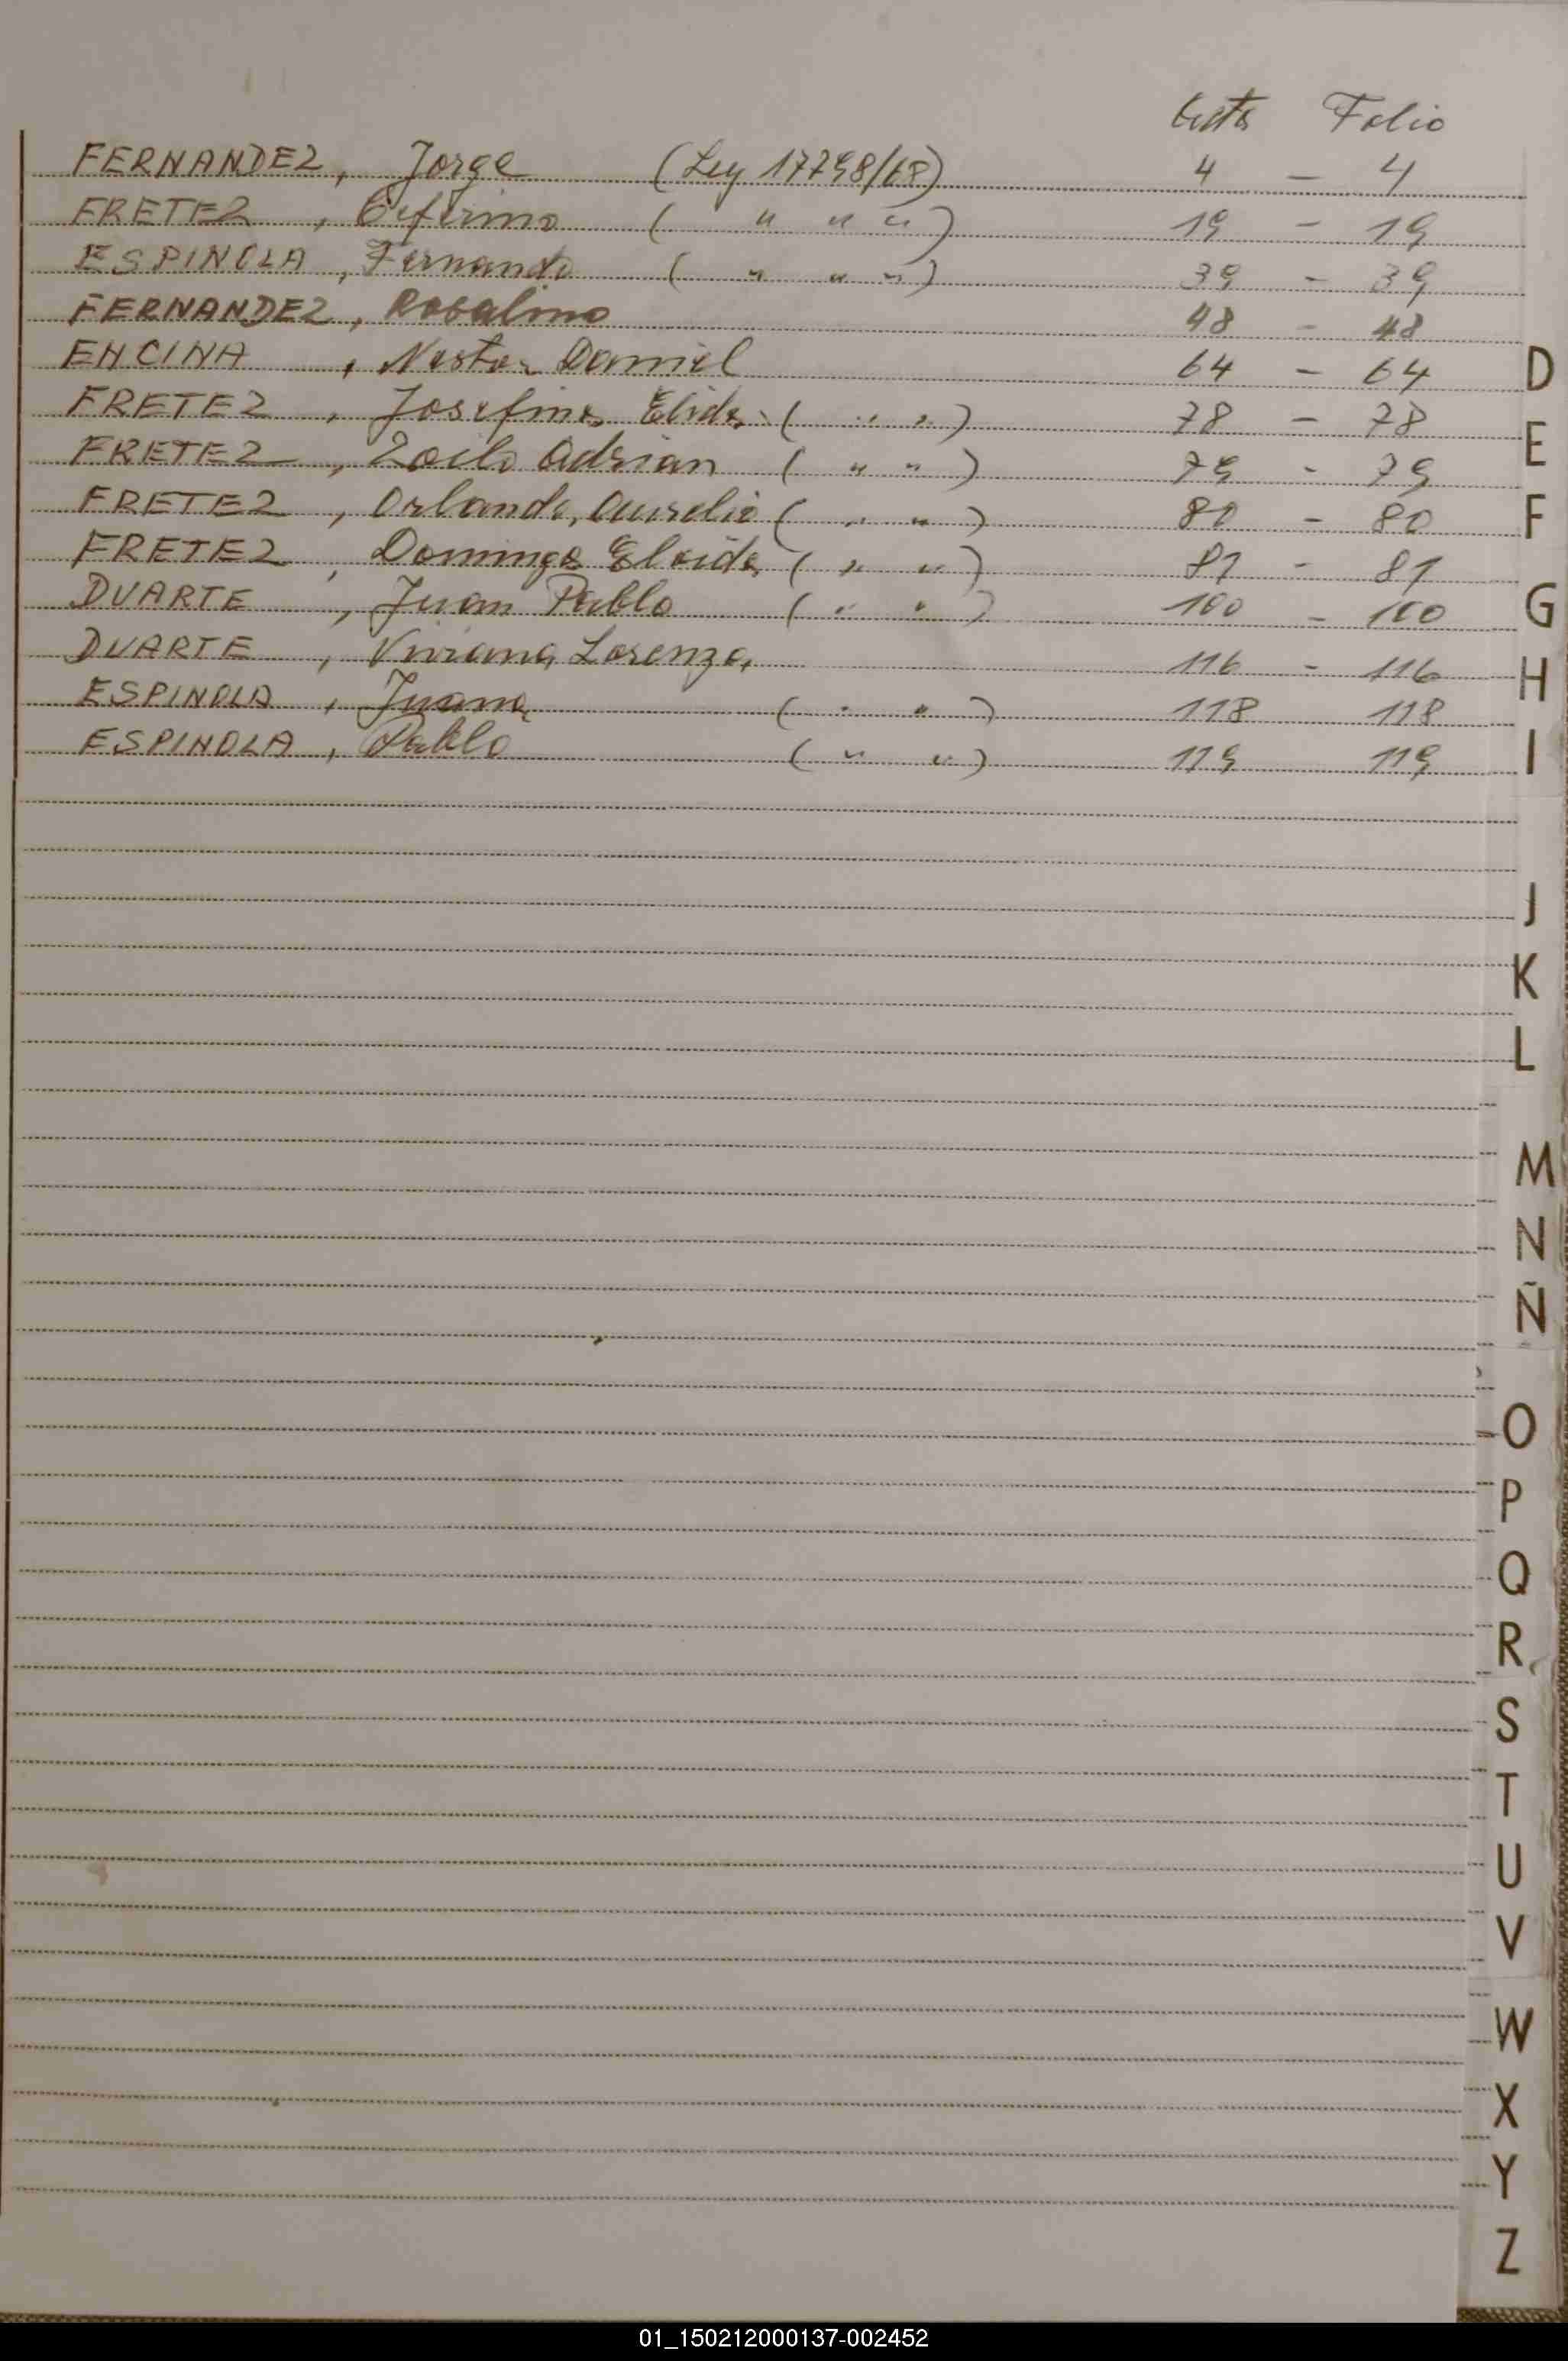 Acta Folio
FERNANDEZ, Jorge (Ley 17798/68) 4 — 4
FRETEZ, Ceferino ( " " " ) 19 — 19
ESPINOLA, Fernando ( " " " ) 39 - 39
FERNANDEZ, Rosalino 48 - 48
ENCINA, Nestor Daniel 64 — 64
FRETEZ, Josefina Elida ( " " ) 78 — 78
FRETEZ, Zoilo Adrian ( " " ) 79 - 79
FRETEZ, Orlando, Aurelio ( " " ) 80 — 80
FRETEZ, Dominga Eleida ( " " ) 81 - 81
DUARTE, Juan Pablo ( " " ) 100 - 100
DUARTE, Viviana Lorenza 116 - 116
ESPINOLA, Juana ( " " ) 118 118
ESPINOLA, Pablo ( " " ) 119 119
D
E
F
G
H
I
J
K
L
M
N
Ñ
O
P
Q
R
S
T
U
V
W
X
Y
Z
01_150212000137-002452